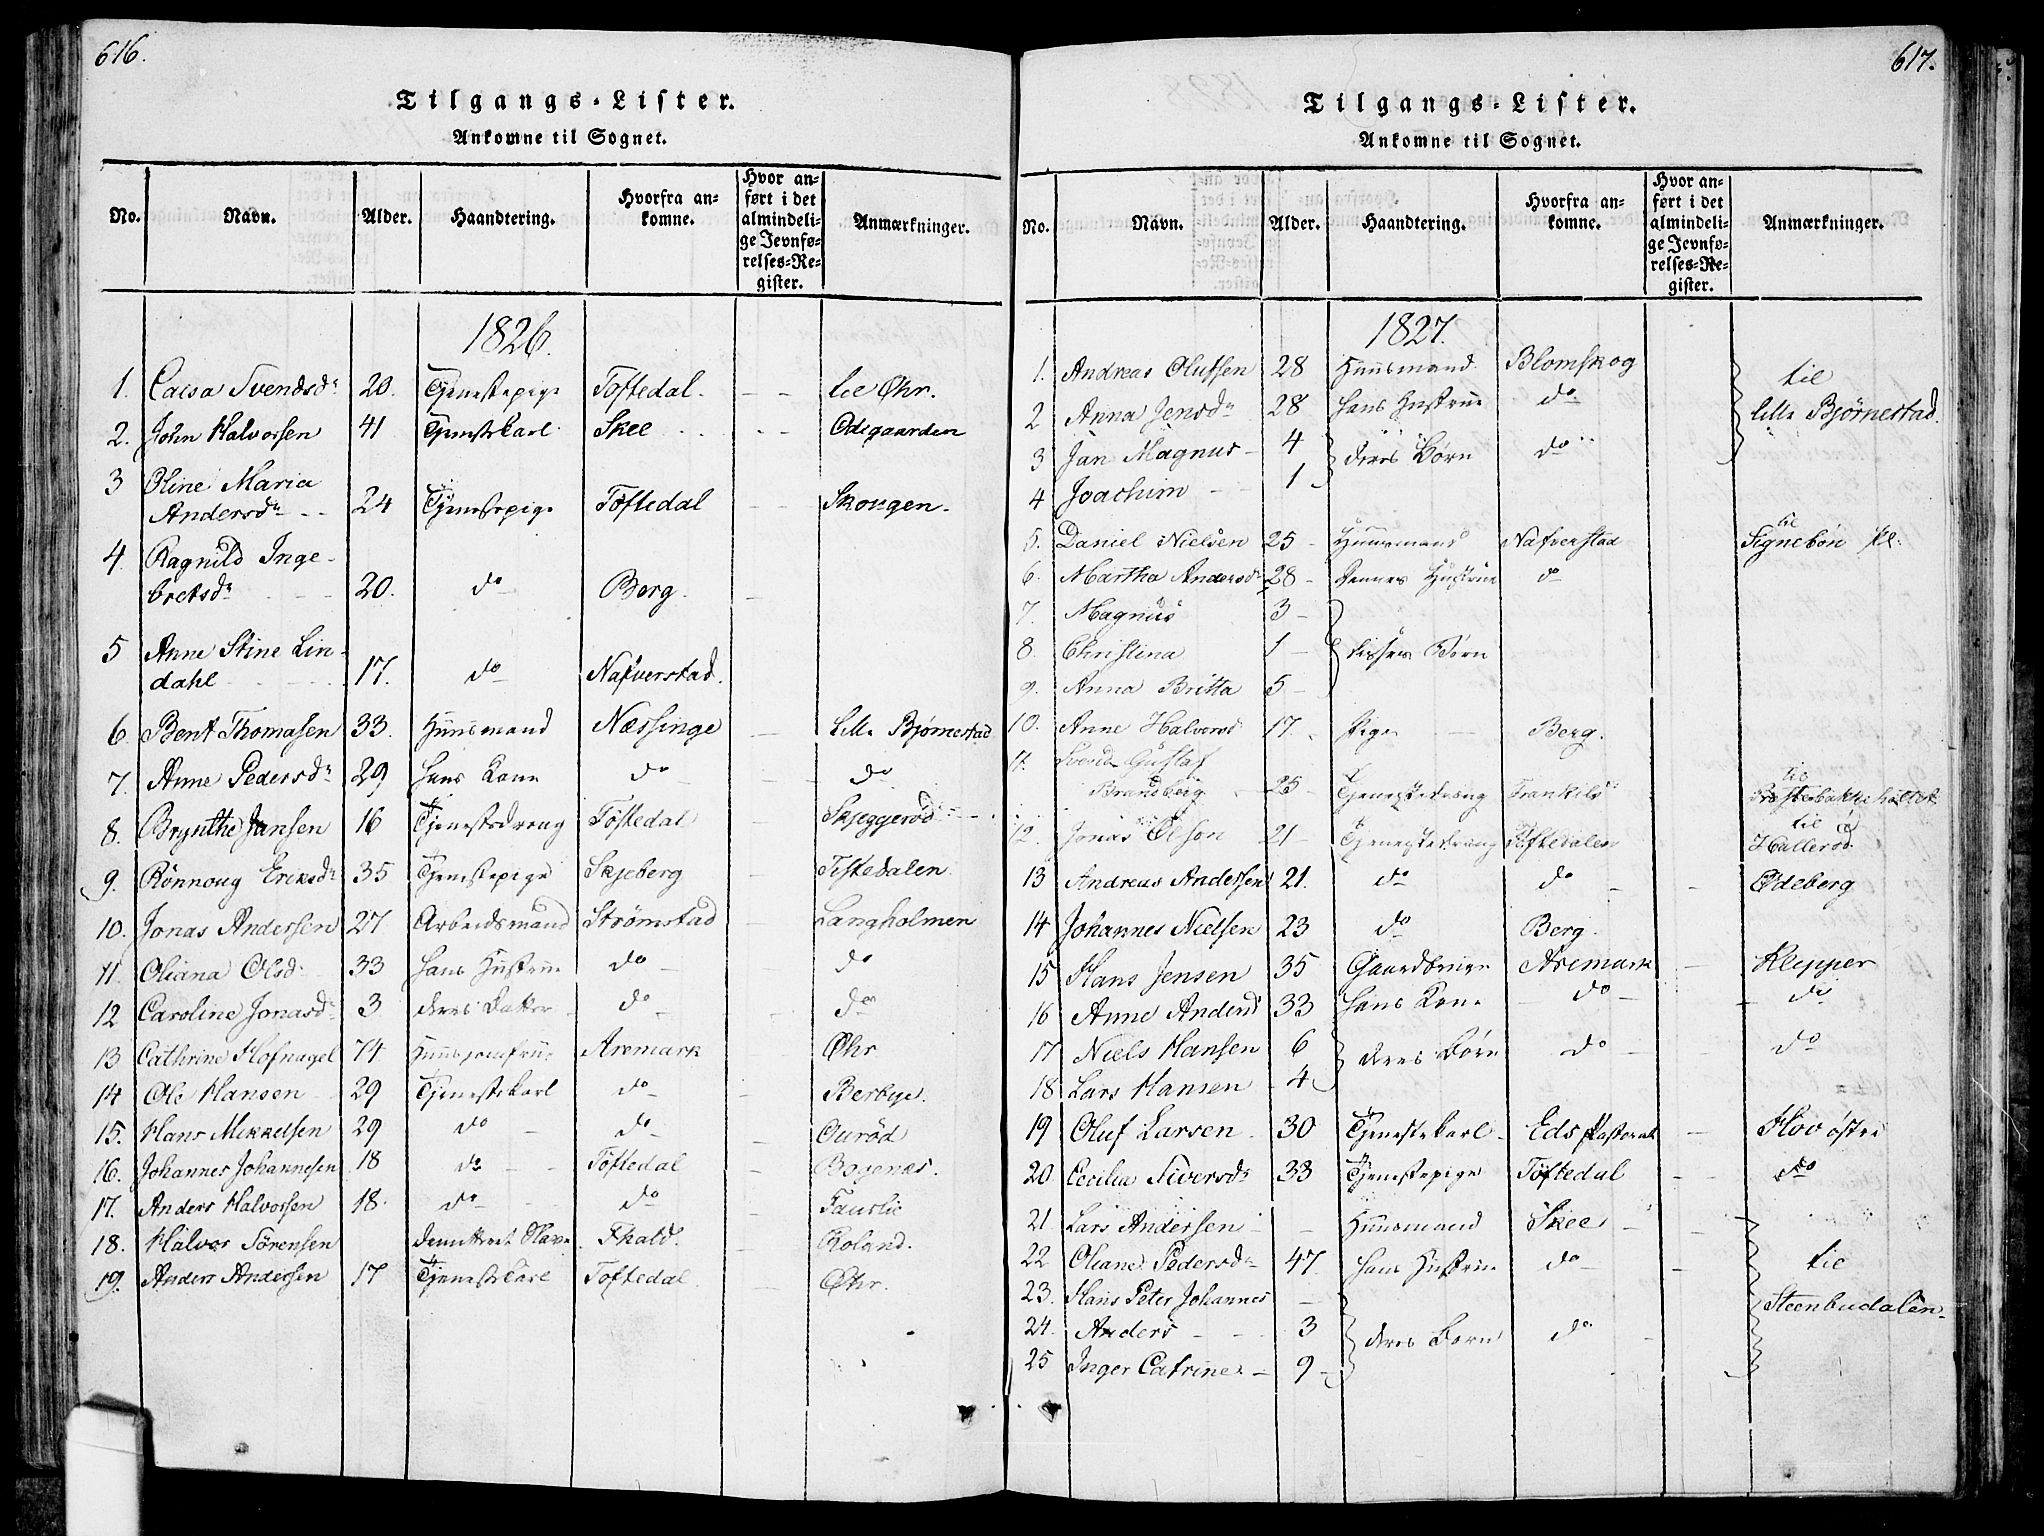 616.
Tilgangs-Lister.
Ankomne til Sognet.
No. Navn. Alder. Haandtering. Hvorfra an-
komne. Hvor an-
ført i det
almindeli-
ge Jevnfø-
relses-Re-
gister. Anmærkninger.
1826.
1. Caisa Svendsdr 20. Tjenestepige Toftedal. - - lie Øhr.
2. John Halvorsen 41 Tjenestekarl Skee - - Ødegaarden
3 Oline Maria
Andersdr - - 24 Tjenestepige Toftedal - - Skougen.
4 Ragnild Inge-
bretsdr 20. do Berg. -
5 Anne Stine Lin-
dahl 17. do Nafverstad.
6. Bent Thomasen 33. Huusmand Næssinge - Lille Bjørnestad
7. Anne Pedersdr 29 hans Kone do - do
8. Brynthe Jansen 16 Tjenestedreng Toftedal - Skjeggerød
9. Rönnoug Eriksdr 35 Tjenestepige Skjeberg - Tistedalen
10. Jonas Andersen 27 Arbeidsmand Strømstad - Langholmen
11. Oliana Olsd. 33 hans Hustrue do - do
12 Caroline Jonasdr 3 deres Datter do - do
13 Cathrine Hofnagel 74. Huusjomfrue Aremark Øhr
14 Ole Hansen 29 Tjenestekarl do - Berbye.
15. Hans Mikkelsen 29 do - do - Ourød
16. Johannes Johannesen 18 do - - Toftedal - Bogenæs.
17. Anders Halvorsen 18. do - do - Fauslie
18. Halvor Sörensen Demitteret Slave Fhald. Roland.
19. Anders Andersen 17 Tjenestekarl Toftedal - Øhr.
617.
Tilgangs-Lister.
Ankomne til Sognet.
No. Navn. Alder. Haandtering. Hvorfra an-
komne. Hvor an-
ført i det
almindeli-
ge Jevnfø-
relses-Re-
gister. Anmærkninger.
1827.
1. Andreas Olufsen 28 Huusmand Blomskog til
2 Anna Jensdr 28 hans Hustrue do lille Bjørnestad.
3 Jan Magnus - 4 deres Børn do
4 Joachim - - 1
5. Daniel Nielsen 25 - Huusmand Nafverstad til Signebøn pl.
6. Martha Andersdr 28 - dennes Hustrue do
7. Magnus 3 -
8. Christina 1 - disses Børn
9. Anna Britta 5 -
10. Anne Halvorsd 17. Pige Berg.
11. Svend Gustaf
Brandberg 25 - Tjenestedreng til
12. Jonas Olson 21 - Tjenestedreng Toftedalen til Hallerød
13 Andreas Andersen 21. do do - - Ødeberg
14 Johannes Nielsen 23 do Berg.
15 Hans Jensen 35 Gaardbruger Aremark - Klepper
16 Anne Andersd 33 hans Kone - do - - do
17 Niels Hansen 6 deres Børn do - - do
18 Lars Hansen - 4
19 Oluf Larsen 30 Tjenestekarl - Eds Pastorat - Hov østre
20 Cecilia Siversdr 33 Tjenestepige Toftedal - - do
21 Lars Andersen - - Huusmand Skee -
22 Oliane Pedersdr 47. hans Hustrue do - til
23. Hans Peter Johannes - Steenbudalen.
24. Anders - - 3 deres Børn do -
25 Inger Catrine - 9 -